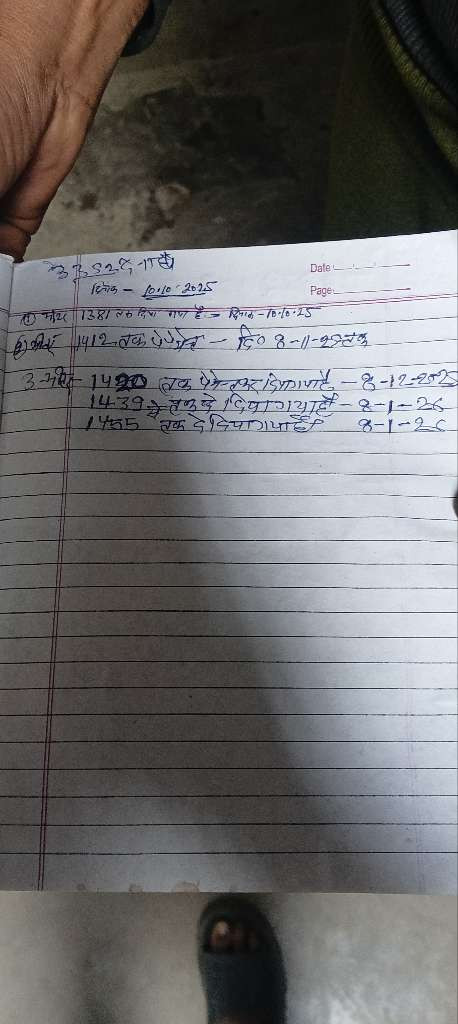 Date
दिनांक - 10.10.2025
Page
① मीटर 1381 तक दिया गया है = दिनांक - 10.10.25
② मीटर 1412 तक पेमेन्ट - दि० 8-11-25 तक
3 - मीटर - 1420 तक पेमेन्ट दिया गया है - 8-12-2025
1439 तक दे दिया गया है - 8-1-26
1455 तक दे दिया गया है 8-1-26